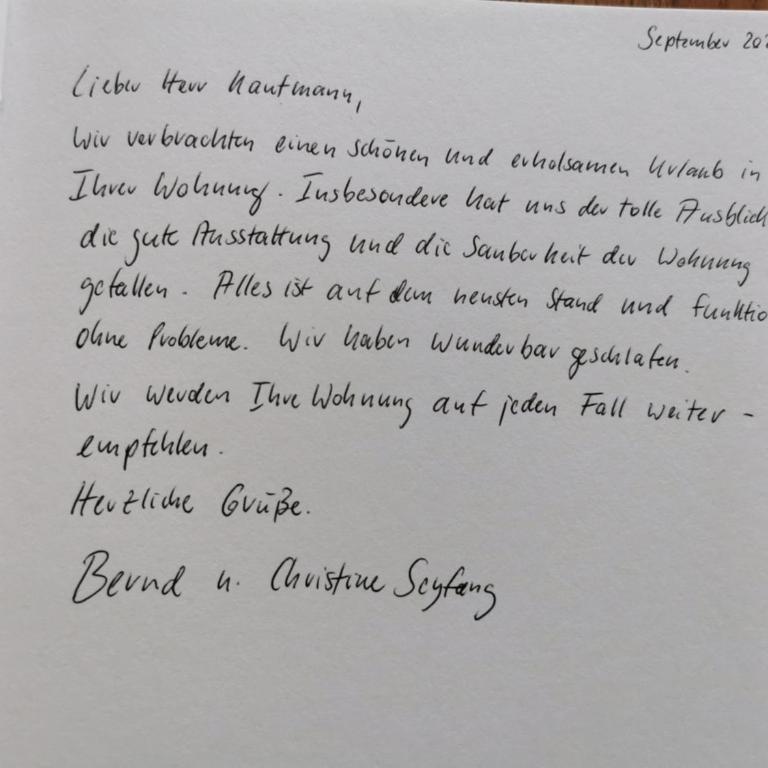 September 202
Lieber Herr Kaufmann,
Wir verbrachten einen schönen und erholsamen Urlaub in
Ihrer Wohnung. Insbesondere hat uns der tolle Ausblick
die gute Ausstattung und die Sauberkeit der Wohnung
gefallen. Alles ist auf dem neusten Stand und funktio
ohne Probleme. Wir haben wunderbar geschlafen.
Wir werden Ihre Wohnung auf jeden Fall weiter-
empfehlen.
Herzliche Grüße.
Bernd u. Christine Seyfang